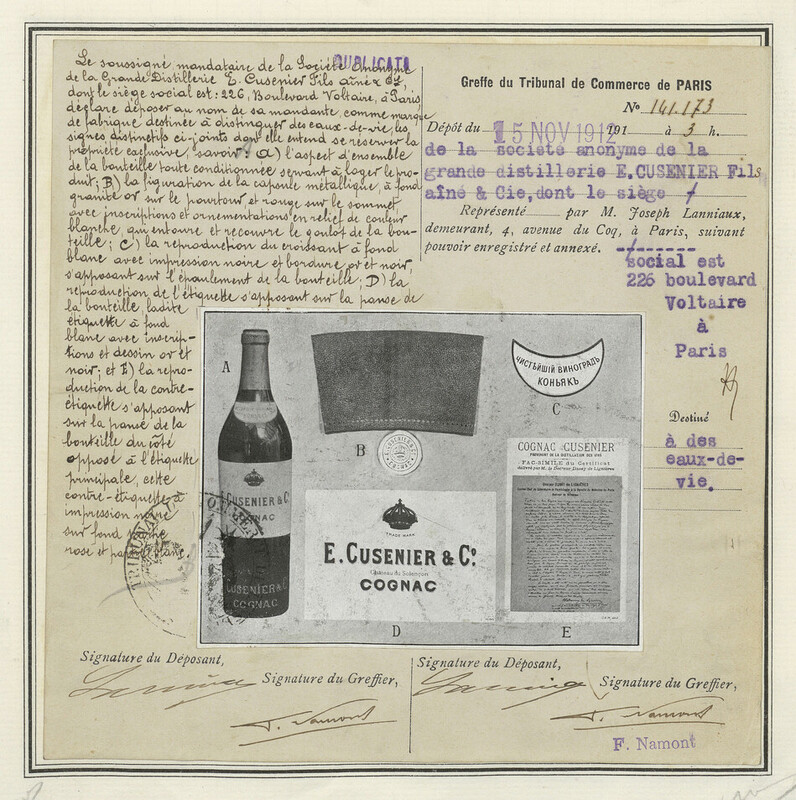 DUPLICATA
Le soussigné mandataire de la Société Anonyme
de la Grande Distillerie E. Cusenier Fils aîné & Cie,
dont le siège social est : 226, Boulevard Voltaire, à Paris,
déclare déposer au nom de sa mandante, comme marque
de fabrique destinée à distinguer des eaux-de-vie, les
signes distinctifs ci-joints dont elle entend se réserver la
propriété exclusive, savoir : A) l'aspect d'ensemble
de la bouteille toute conditionnée servant à loger le pro-
duit ; B) la figuration de la capsule métallique, à fond
granité or sur le pourtour et rouge sur le sommet
avec inscriptions et ornementations en relief de couleur
blanche, qui entoure et recouvre le goulot de la bou-
teille ; C) la reproduction du croissant à fond
blanc avec impression noire et bordure or et noir,
s'apposant sur l'épaulement de la bouteille ; D) la
reproduction de l'étiquette s'apposant sur la panse de
la bouteille, ladite
étiquette à fond
blanc avec inscrip-
tions et dessin or et
noir ; et E) la repro-
duction de la contre-
étiquette s'apposant
sur la panse de la
bouteille du côté
opposé à l'étiquette
principale, cette
contre-étiquette à
impression noire
sur fond
rose et blanc.
Greffe du Tribunal de Commerce de PARIS
No 141.173
Dépôt du 15 NOV 1912 191 à 3 h.
de la société anonyme de la
grande distillerie E.CUSENIER Fils
aîné & Cie,dont le siège
Représenté par M. Joseph Lanniaux,
demeurant, 4, avenue du Coq, à Paris, suivant
pouvoir enregistré et annexé.
social est
226 boulevard
Voltaire
à
Paris
Destiné
à des
eaux-de-
vie.
A
CUSENIER & Co
COGNAC
CUSENIER &
COGNAC
B
ЧИСТѢЙШІЙ ВИНОГРАДЪ
КОНЬЯКЪ
C
TRADE MARK
E. CUSENIER & Co
COGNAC
D
COGNAC CUSENIER
PROVENANT DE LA DISTILLATION DES VINS
FAC-SIMILE du Certificat
E
TRIBUNAL
Signature du Déposant,
Signature du Greffier,
F. Namont
Signature du Déposant,
Signature du Greffier,
F. Namont
F. Namont